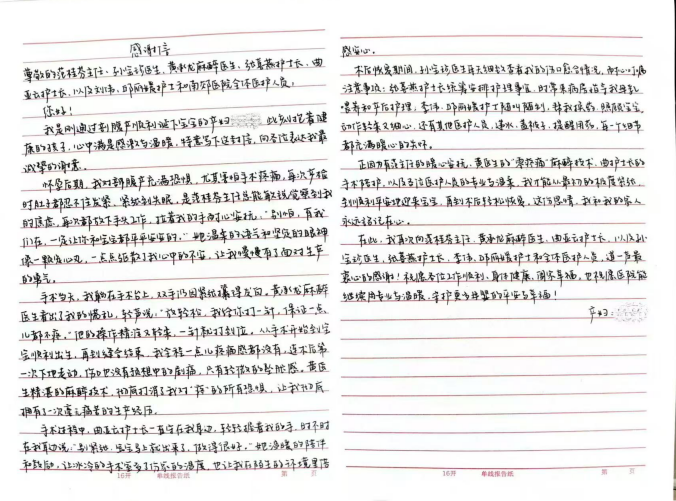 感谢信
尊敬的范桂芬主任、孙宝珍医生、黄永龙麻醉医生、张基燕护士长、曲
亚云护士长，以及刘伟、邱丽媛护士和南郊医院全体医护人员：
您好！
我是刚通过剖腹产顺利诞下宝宝的产妇 此刻抱着健
康的孩子，心中满是感激与温暖，特意写下这封信，向各位表达我最
诚挚的谢意。
怀孕后期，我对剖腹产充满恐惧，尤其害怕手术疼痛，每次产检
时肚子都忍不住发紧，紧张到失眠，是范桂芬主任总能敏锐察觉到我
的焦虑，每次都放下手头工作，拉着我的手耐心安抚，“别怕，有我
们在，一定让你和宝宝都平平安安的。”她温柔的语气和坚定的眼神
像一颗定心丸，一点点驱散了我心中的不安，让我慢慢有了面对生产
的勇气。
手术当天，我躺在手术台上，双手仍因紧张攥得发白，黄永龙麻醉
医生看出了我的慌乱，轻声说：“放轻松，我给你打一针，保证一点
儿都不疼。”他的操作精准又轻柔，一针就打到位。从手术开始到宝
宝顺利出生，再到缝合结束，我全程一点儿疼痛感都没有，连术后第
一次下地走动，伤口也没有想象中的剧痛，只有轻微的坠胀感。黄医
生精湛的麻醉技术，彻底打消了我对“疼”的所有恐惧，让我彻底
拥有了一次毫无痛苦的生产经历。
手术过程中，曲亚云护士长一直守在我身边，轻轻握着我的手，时不时
在我耳边说，“别紧张，宝宝马上就出来了，做得很好。”她温暖的陪伴
和鼓励，让冰冷的手术室多了份家的温度，也让我在陌生的环境里倍
16开 单线报告纸 第 页
感安心。
术后恢复期间，孙宝珍医生每天细致查看我的伤口愈合情况，耐心叮嘱
注意事项；张基燕护士长统筹安排护理事宜，时常来病房指导我母乳
喂养和产后护理，李伟、邱丽媛护士随叫随到，帮我换药、照顾宝宝，
动作轻柔又细心，还有其他医护人员，递水、盖被子、提醒用药，每一个细节
都充满暖心的关怀。
正因为范主任的暖心安抚、黄医生的“零疼痛”麻醉技术、曲护士长的
手术陪护，以及各位医护人员的专业与温柔，我才能从最初的极度紧张，
到顺利平安地迎来宝宝，再到术后轻松恢复，这份恩情，我和我的家人
永远铭记在心。
在此，我再次向范桂芬主任、黄永龙麻醉医生、曲亚云护士长，以及孙
宝珍医生、张基燕护士长、李伟、邱丽媛护士和全体医护人员，道一声最
衷心的感谢！祝愿各位工作顺利，身体健康，阖家幸福，也祝愿医院能
继续用专业与温暖，守护更多母婴的平安与幸福！
产妇：
16开 单线报告纸 第 页